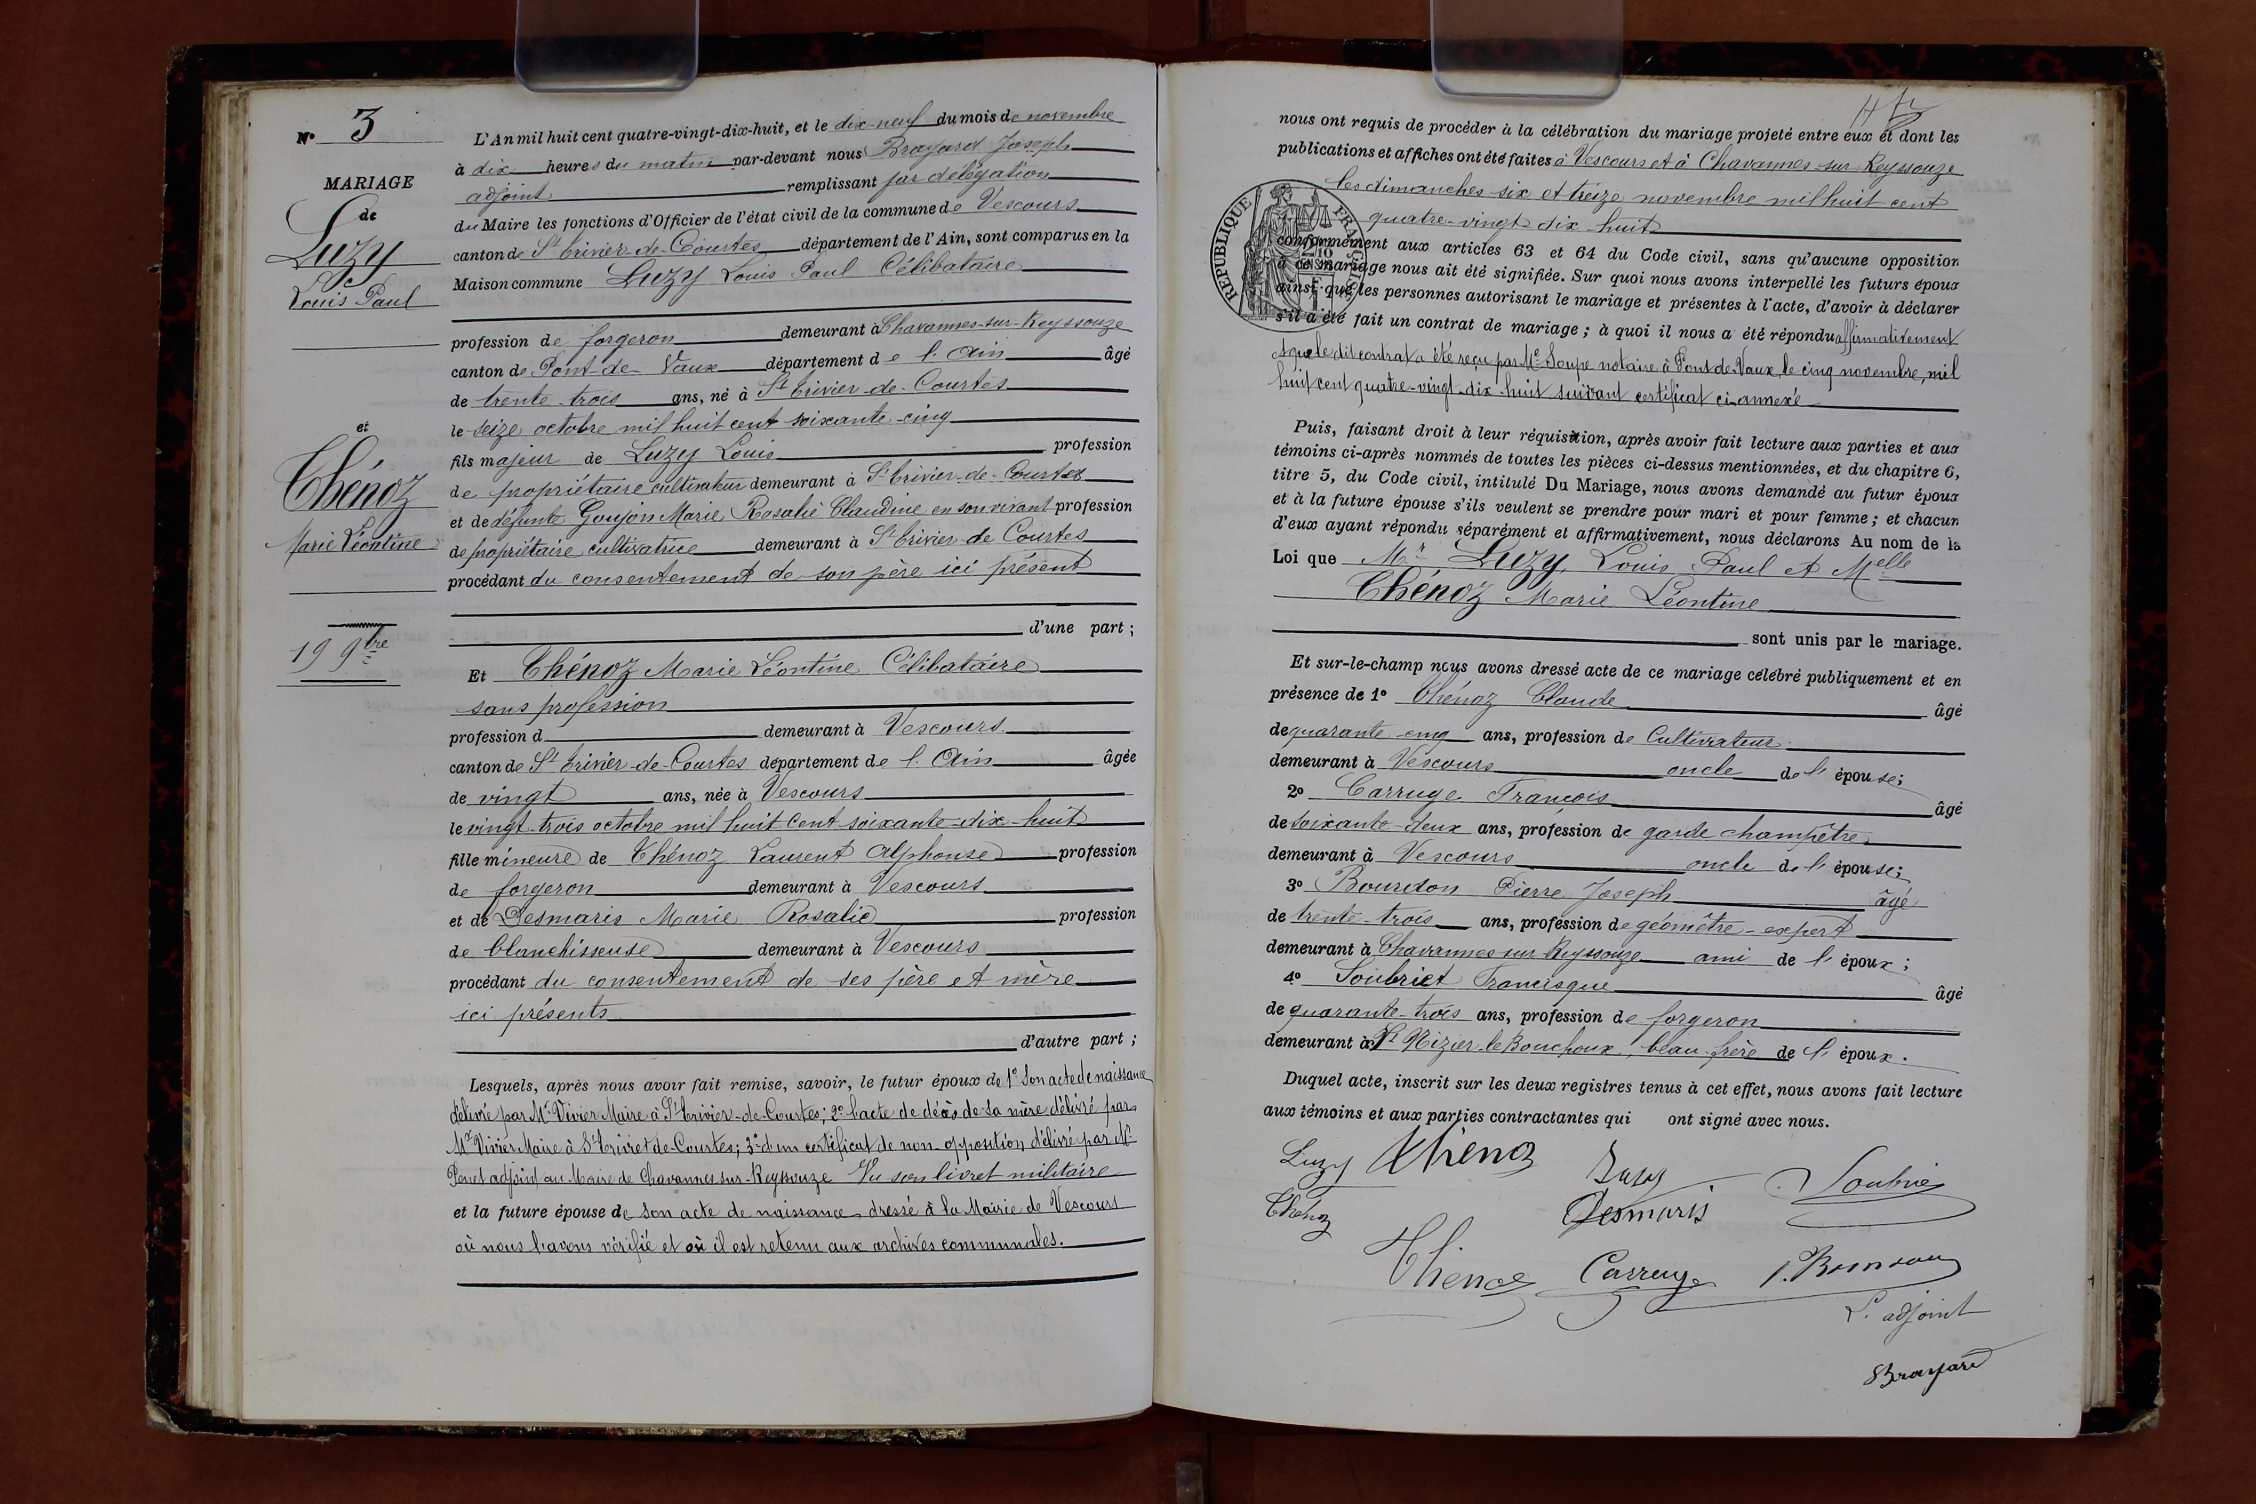 N° 3
MARIAGE
de
Luzy
Louis Paul
et
Thénoz
Marie Léontine
19 9bre
L'An mil huit cent quatre-vingt-dix-huit, et le dix-neuf du mois de novembre
à dix heures du matin par-devant nous Brayard Joseph
adjoint remplissant par délégation
du Maire les fonctions d'Officier de l'état civil de la commune de Vescours
canton de St Trivier-de-Courtes département de l'Ain, sont comparus en la
Maison commune Luzy Louis Paul Célibataire
profession de forgeron demeurant à Chavannes-sur-Reyssouze
canton de Pont-de-Vaux département de l'Ain âgé
de trente-trois ans, né à St Trivier-de-Courtes
le seize octobre mil huit cent soixante-cinq
fils majeur de Luzy Louis profession
de propriétaire cultivateur demeurant à St Trivier-de-Courtes
et de défunte Goujon Marie Rosalie Claudine en son vivant profession
de propriétaire cultivatrice demeurant à St Trivier-de-Courtes
procédant du consentement de son père ici présent
d'une part ;
Et Thénoz Marie Léontine Célibataire
sans profession
profession d demeurant à Vescours
canton de St Trivier-de-Courtes département de l'Ain âgée
de vingt ans, née à Vescours
le vingt-trois octobre mil huit cent soixante-dix-huit
fille mineure de Thénoz Laurent Alphonse profession
de forgeron demeurant à Vescours
et de Desmaris Marie Rosalie profession
de blanchisseuse demeurant à Vescours
procédant du consentement de ses père et mère
ici présents
d'autre part ;
Lesquels, après nous avoir fait remise, savoir, le futur époux de 1° Son acte de naissance
délivré par Mr Vivier Maire à St Trivier-de-Courtes; 2° l'acte de décès de sa mère délivré par
Mr Vivier Maire à St Trivier-de-Courtes; 3° d'un certificat de non-opposition délivré par Mr
adjoint au Maire de Chavannes-sur-Reyssouze Vu son livret militaire
et la future épouse de son acte de naissance dressé à la Mairie de Vescours
où nous l'avons vérifié et où il est retenu aux archives communales.
nous ont requis de procéder à la célébration du mariage projeté entre eux et dont les
publications et affiches ont été faites à Vescours et à Chavannes-sur-Reyssouze
les dimanches six et treize novembre mil huit cent
quatre-vingt dix-huit
RÉPUBLIQUE FRANÇAISE
conformément aux articles 63 et 64 du Code civil, sans qu'aucune opposition
à ce mariage nous ait été signifiée. Sur quoi nous avons interpellé les futurs époux
ainsi que les personnes autorisant le mariage et présentes à l'acte, d'avoir à déclarer
s'il a été fait un contrat de mariage ; à quoi il nous a été répondu affirmativement
et que le dit contrat a été reçu par Me Soupe notaire à Pont de Vaux, le cinq novembre, mil
huit cent quatre-vingt-dix-huit suivant certificat ci-annexé
Puis, faisant droit à leur réquisition, après avoir fait lecture aux parties et aux
témoins ci-après nommés de toutes les pièces ci-dessus mentionnées, et du chapitre 6,
titre 5, du Code civil, intitulé Du Mariage, nous avons demandé au futur époux
et à la future épouse s'ils veulent se prendre pour mari et pour femme ; et chacun
d'eux ayant répondu séparément et affirmativement, nous déclarons Au nom de la
Loi que Mr Luzy, Louis Paul et Melle
Thénoz Marie Léontine
sont unis par le mariage.
Et sur-le-champ nous avons dressé acte de ce mariage célébré publiquement et en
présence de 1° Thénoz Claude âgé
de quarante-cinq ans, profession de Cultivateur
demeurant à Vescours oncle de l'épouse;
2° Carruge François âgé
de soixante-deux ans, profession de garde champêtre
demeurant à Vescours oncle de l'épouse;
3° Bourdon Pierre Joseph âgé
de trente-trois ans, profession de géomètre-expert
demeurant à Chavannes sur Reyssouze ami de l'époux ;
4° Soubriet Francisque âgé
de quarante-trois ans, profession de forgeron
demeurant à St Nizier-le-Bouchoux, beau-frère de l'époux.
Duquel acte, inscrit sur les deux registres tenus à cet effet, nous avons fait lecture
aux témoins et aux parties contractantes qui ont signé avec nous.
Luzy Thénoz Luzy Soubrié
Thénoz Desmaris
Thénoz Carruge
L'adjoint
Brayard